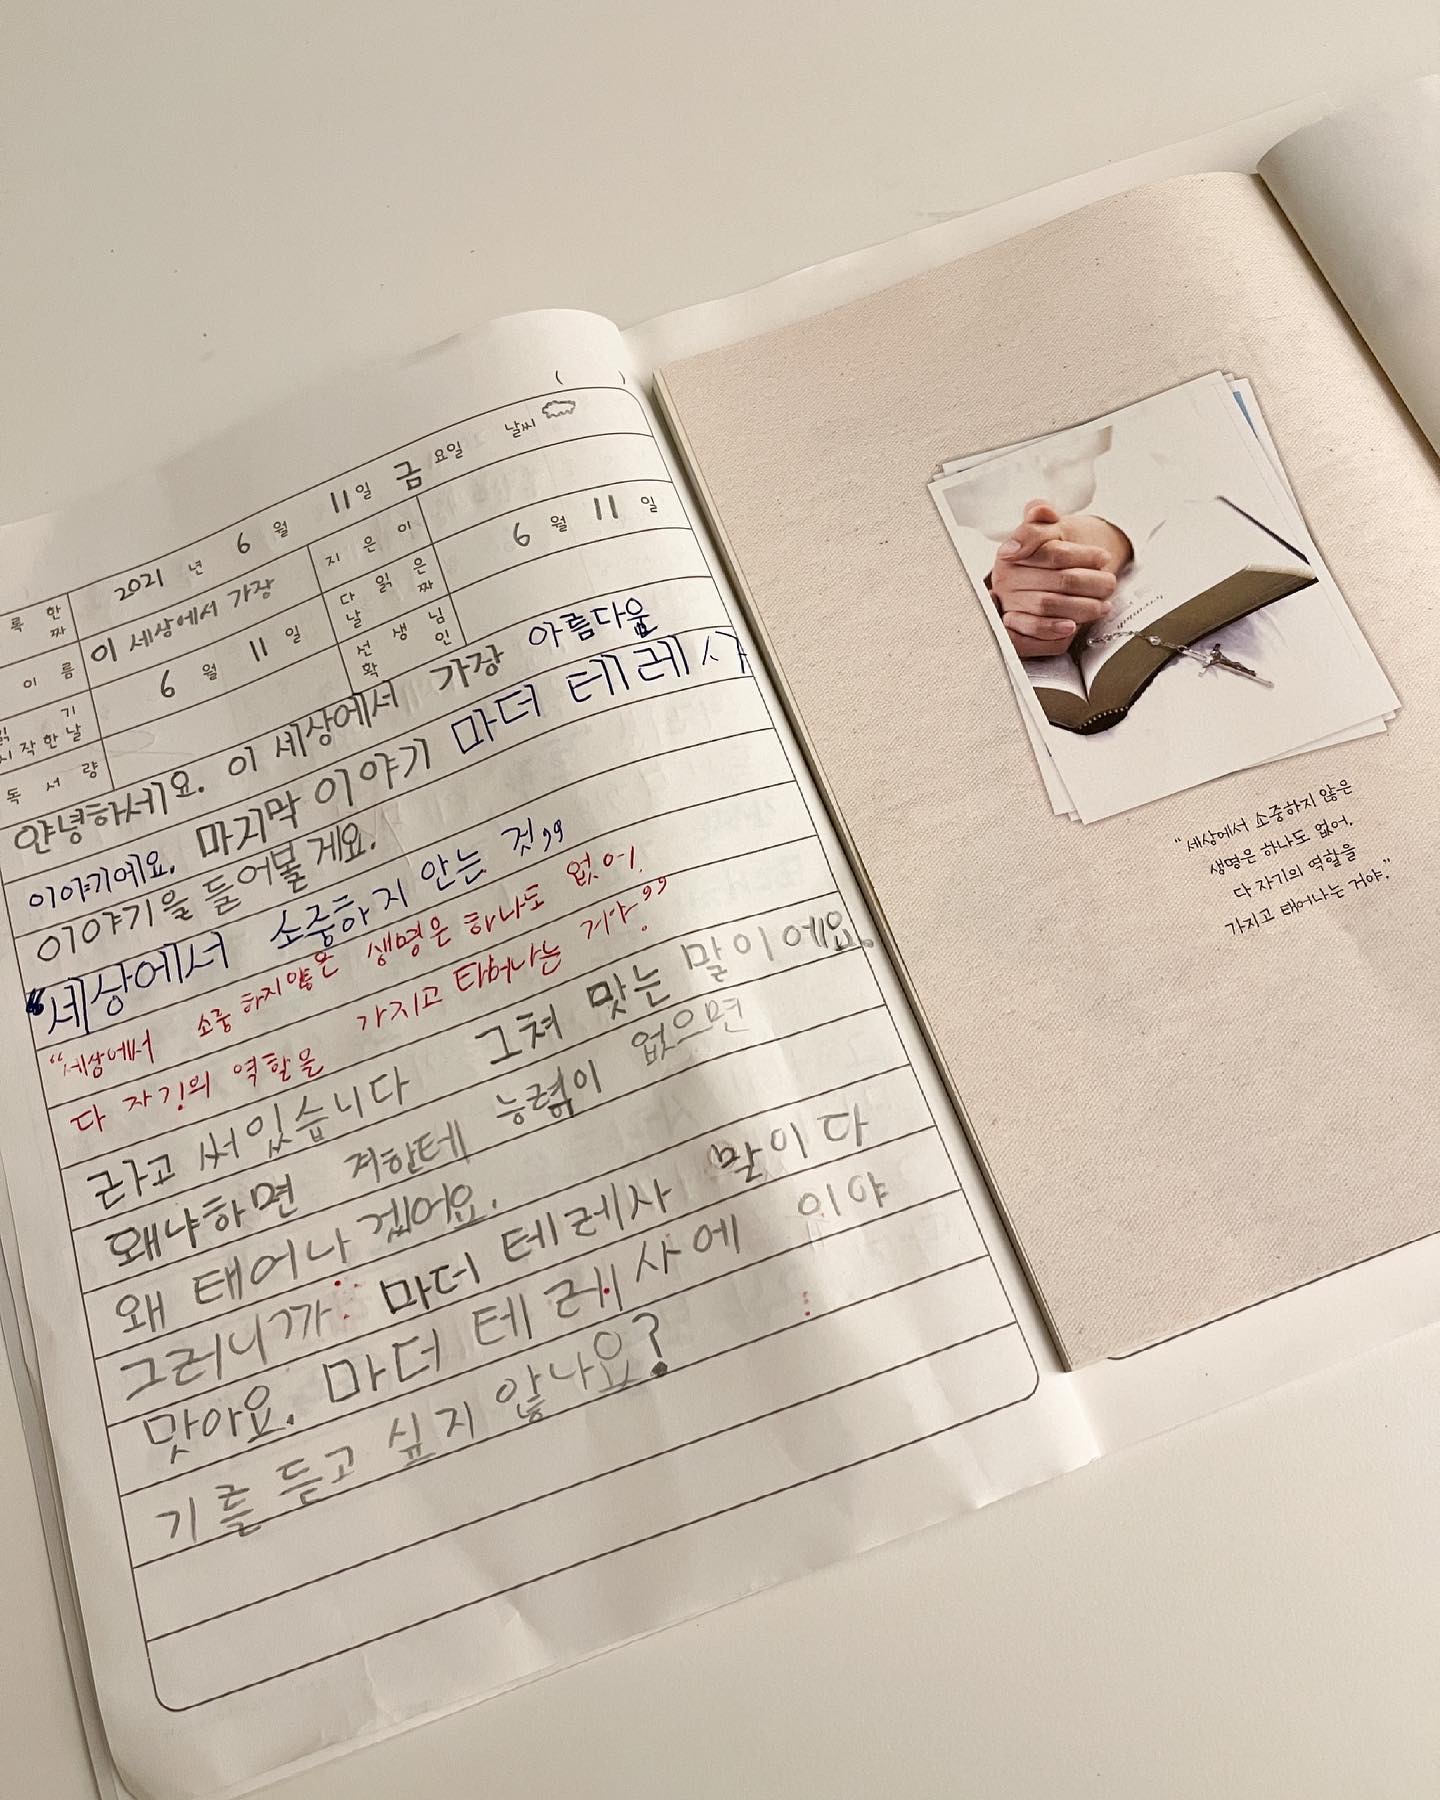 ( )
록한 2021 년 6 월 11 일 금 요일 날씨
짜
이름 이 세상에서 가장 지은이
읽기 6 월 11 일 다 읽은 6 월 11 일
시작한날 날짜
독서량 선생님
확인
안녕하세요. 이 세상에서 가장 아름다움
이야기에요. 마지막 이야기 마더 테레사
이야기을 들어볼게요.
"세상에서 소중하지 안는 것,,
"세상에서 소중하지않은 생명은 하나도 없어.
다 자기의 역할을 가지고 태어나는 거야."
라고 써있습니다 그쳐 맞는 말이에요.
왜냐하면 걔한테 능력이 없으면
왜 태어나겠어요.
그러니까 마더 테레사 말이다
맞아요. 마더 테레사에 이야
기를 듣고 싶지 않나요?
" 세상에서 소중하지 않은
생명은 하나도 없어.
다 자기의 역할을
가지고 태어나는 거야. "